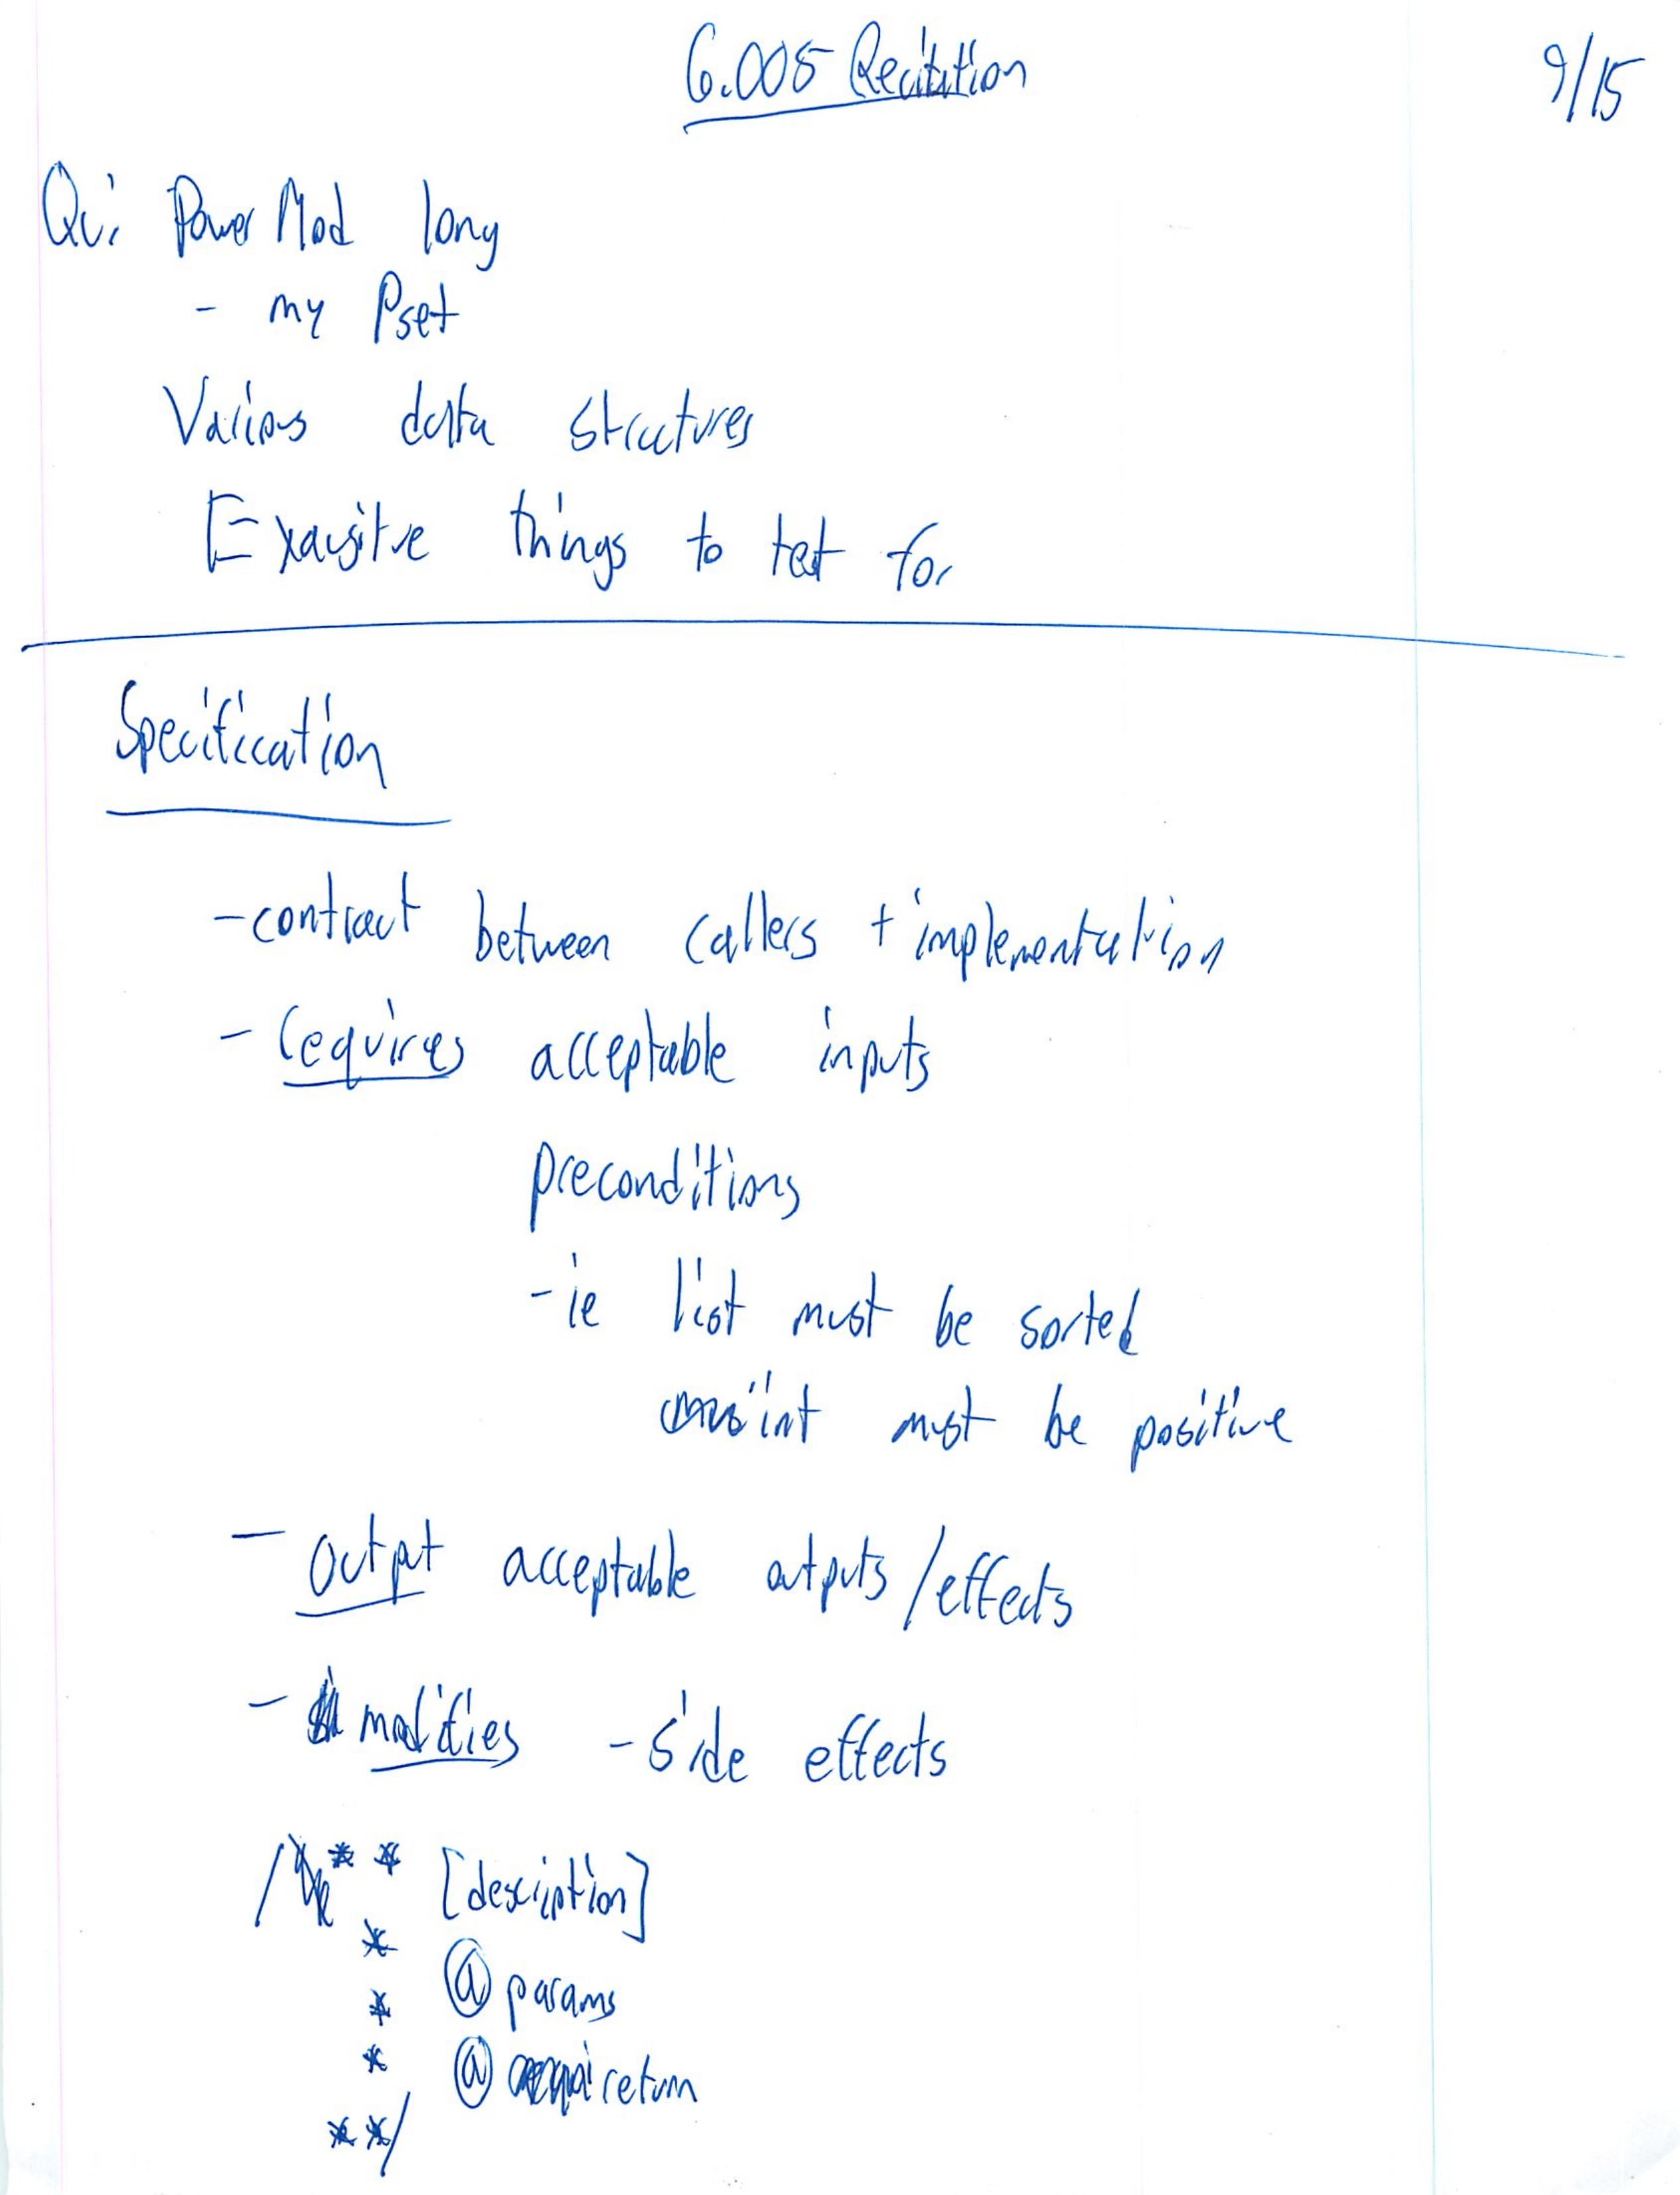 6.005 Recitation
9/15
Qu: PowerMod long
- my Pset
Various data structures
Exausitve things to test for
Specification
- contract between callers + implementation
- requires acceptable inputs
preconditions
- ie list must be sorted
int must be positive
- Output acceptable outputs/effects
- modifies - side effects
/** [description]
* @params
* @ return
**/